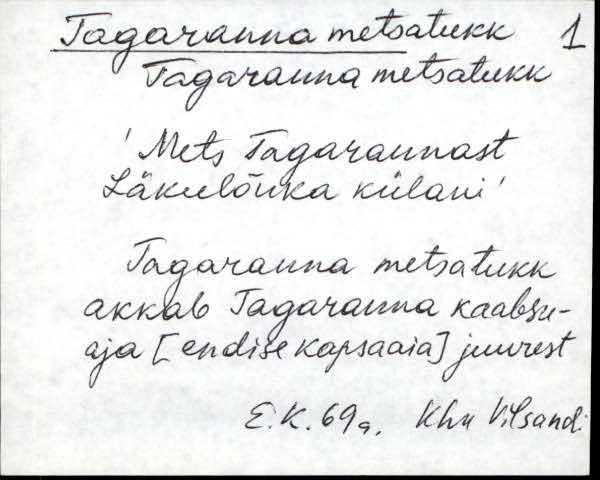 Tagaranna metsatukk 1
Tagaranna metsatukk
' Mets Tagarannast
Läkulõuka külani '
Tagaranna metsatukk
akkab Tagaranna kaabsu-
aja [endise kapsaaia] juurest
E.K. 69a. Khn Vilsandi